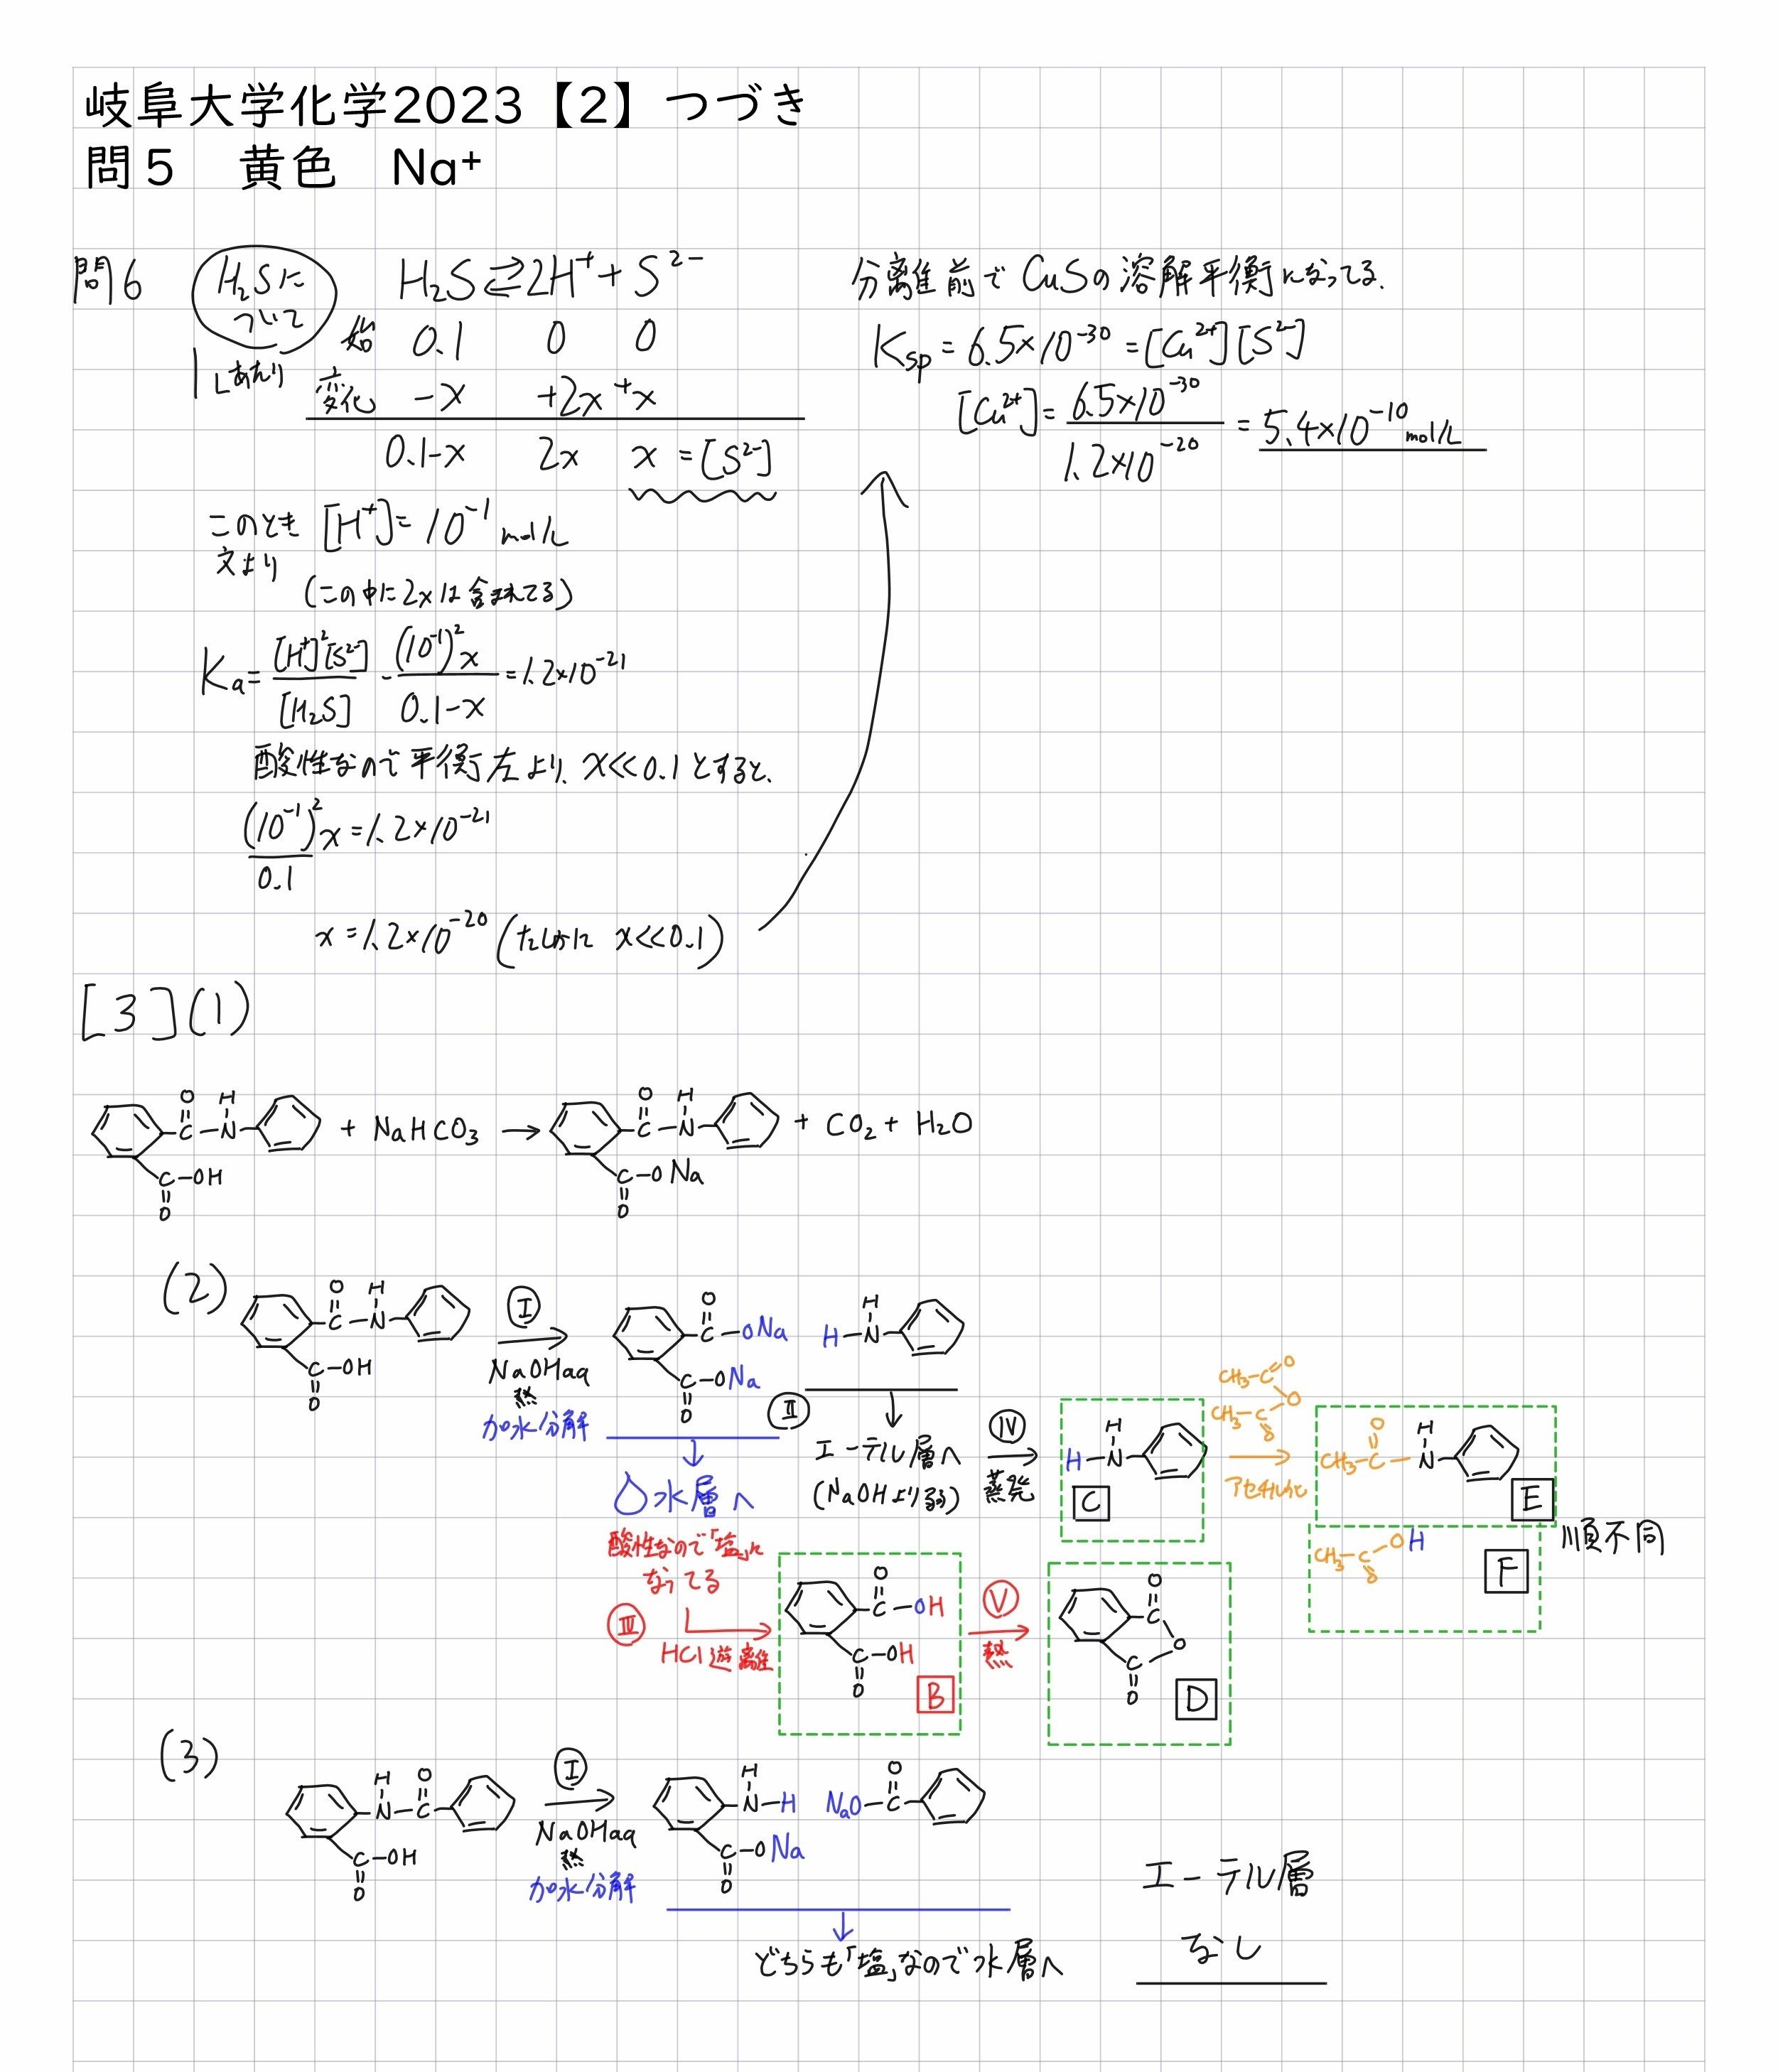 岐阜大学化学2023【2】つづき
問5 黄色 Na⁺
問6
H₂Sに
ついて
1Lあたり
H₂S⇄2H⁺+S²⁻
始 0.1 0 0
変化 -x +2x +x
0.1-x 2x x=[S²⁻]
このとき [H⁺]=10⁻¹mol/L
文より
(この中に2xは含まれてる)
Ka=[H⁺]²[S²⁻]/[H₂S] = (10⁻¹)²x/0.1-x =1.2×10⁻²¹
酸性なので平衡左より、x<<0.1とすると、
(10⁻¹)²/0.1 x=1.2×10⁻²¹
x=1.2×10⁻²⁰(たしかに x<<0.1)
分離前でCuSの溶解平衡になってる.
Ksp=6.5×10⁻³⁰=[Cu²⁺][S²⁻]
[Cu²⁺]=6.5×10⁻³⁰/1.2×10⁻²⁰=5.4×10⁻¹⁰mol/L
[3](1)
O H
C-N
C-OH
O
+ NaHCO₃ →
O H
C-N
C-ONa
O
+ CO₂+ H₂O
(2)
O H
C-N
C-OH
O
Ⅰ
NaOHaq
熱
加水分解
O
C-ONa
C-ONa
O
H
H-N
Ⅱ
水層へ
エーテル層へ
(NaOHより弱)
Ⅳ
蒸発
H
H-N
C
CH₃-C=O
O
CH₃-C=O
アセチル化
O H
CH₃-C-N
E
CH₃-C-OH
O
F
順不同
酸性なので「塩」に
なってる
Ⅲ
HCl 遊離
O
C-OH
C-OH
O
B
Ⅴ
熱
O
C
O
C
O
D
(3)
H O
N-C
C-OH
O
Ⅰ
NaOHaq
熱
加水分解
H
N-H
C-ONa
O
O
NaO-C
どちらも「塩」なので水層へ
エーテル層
なし